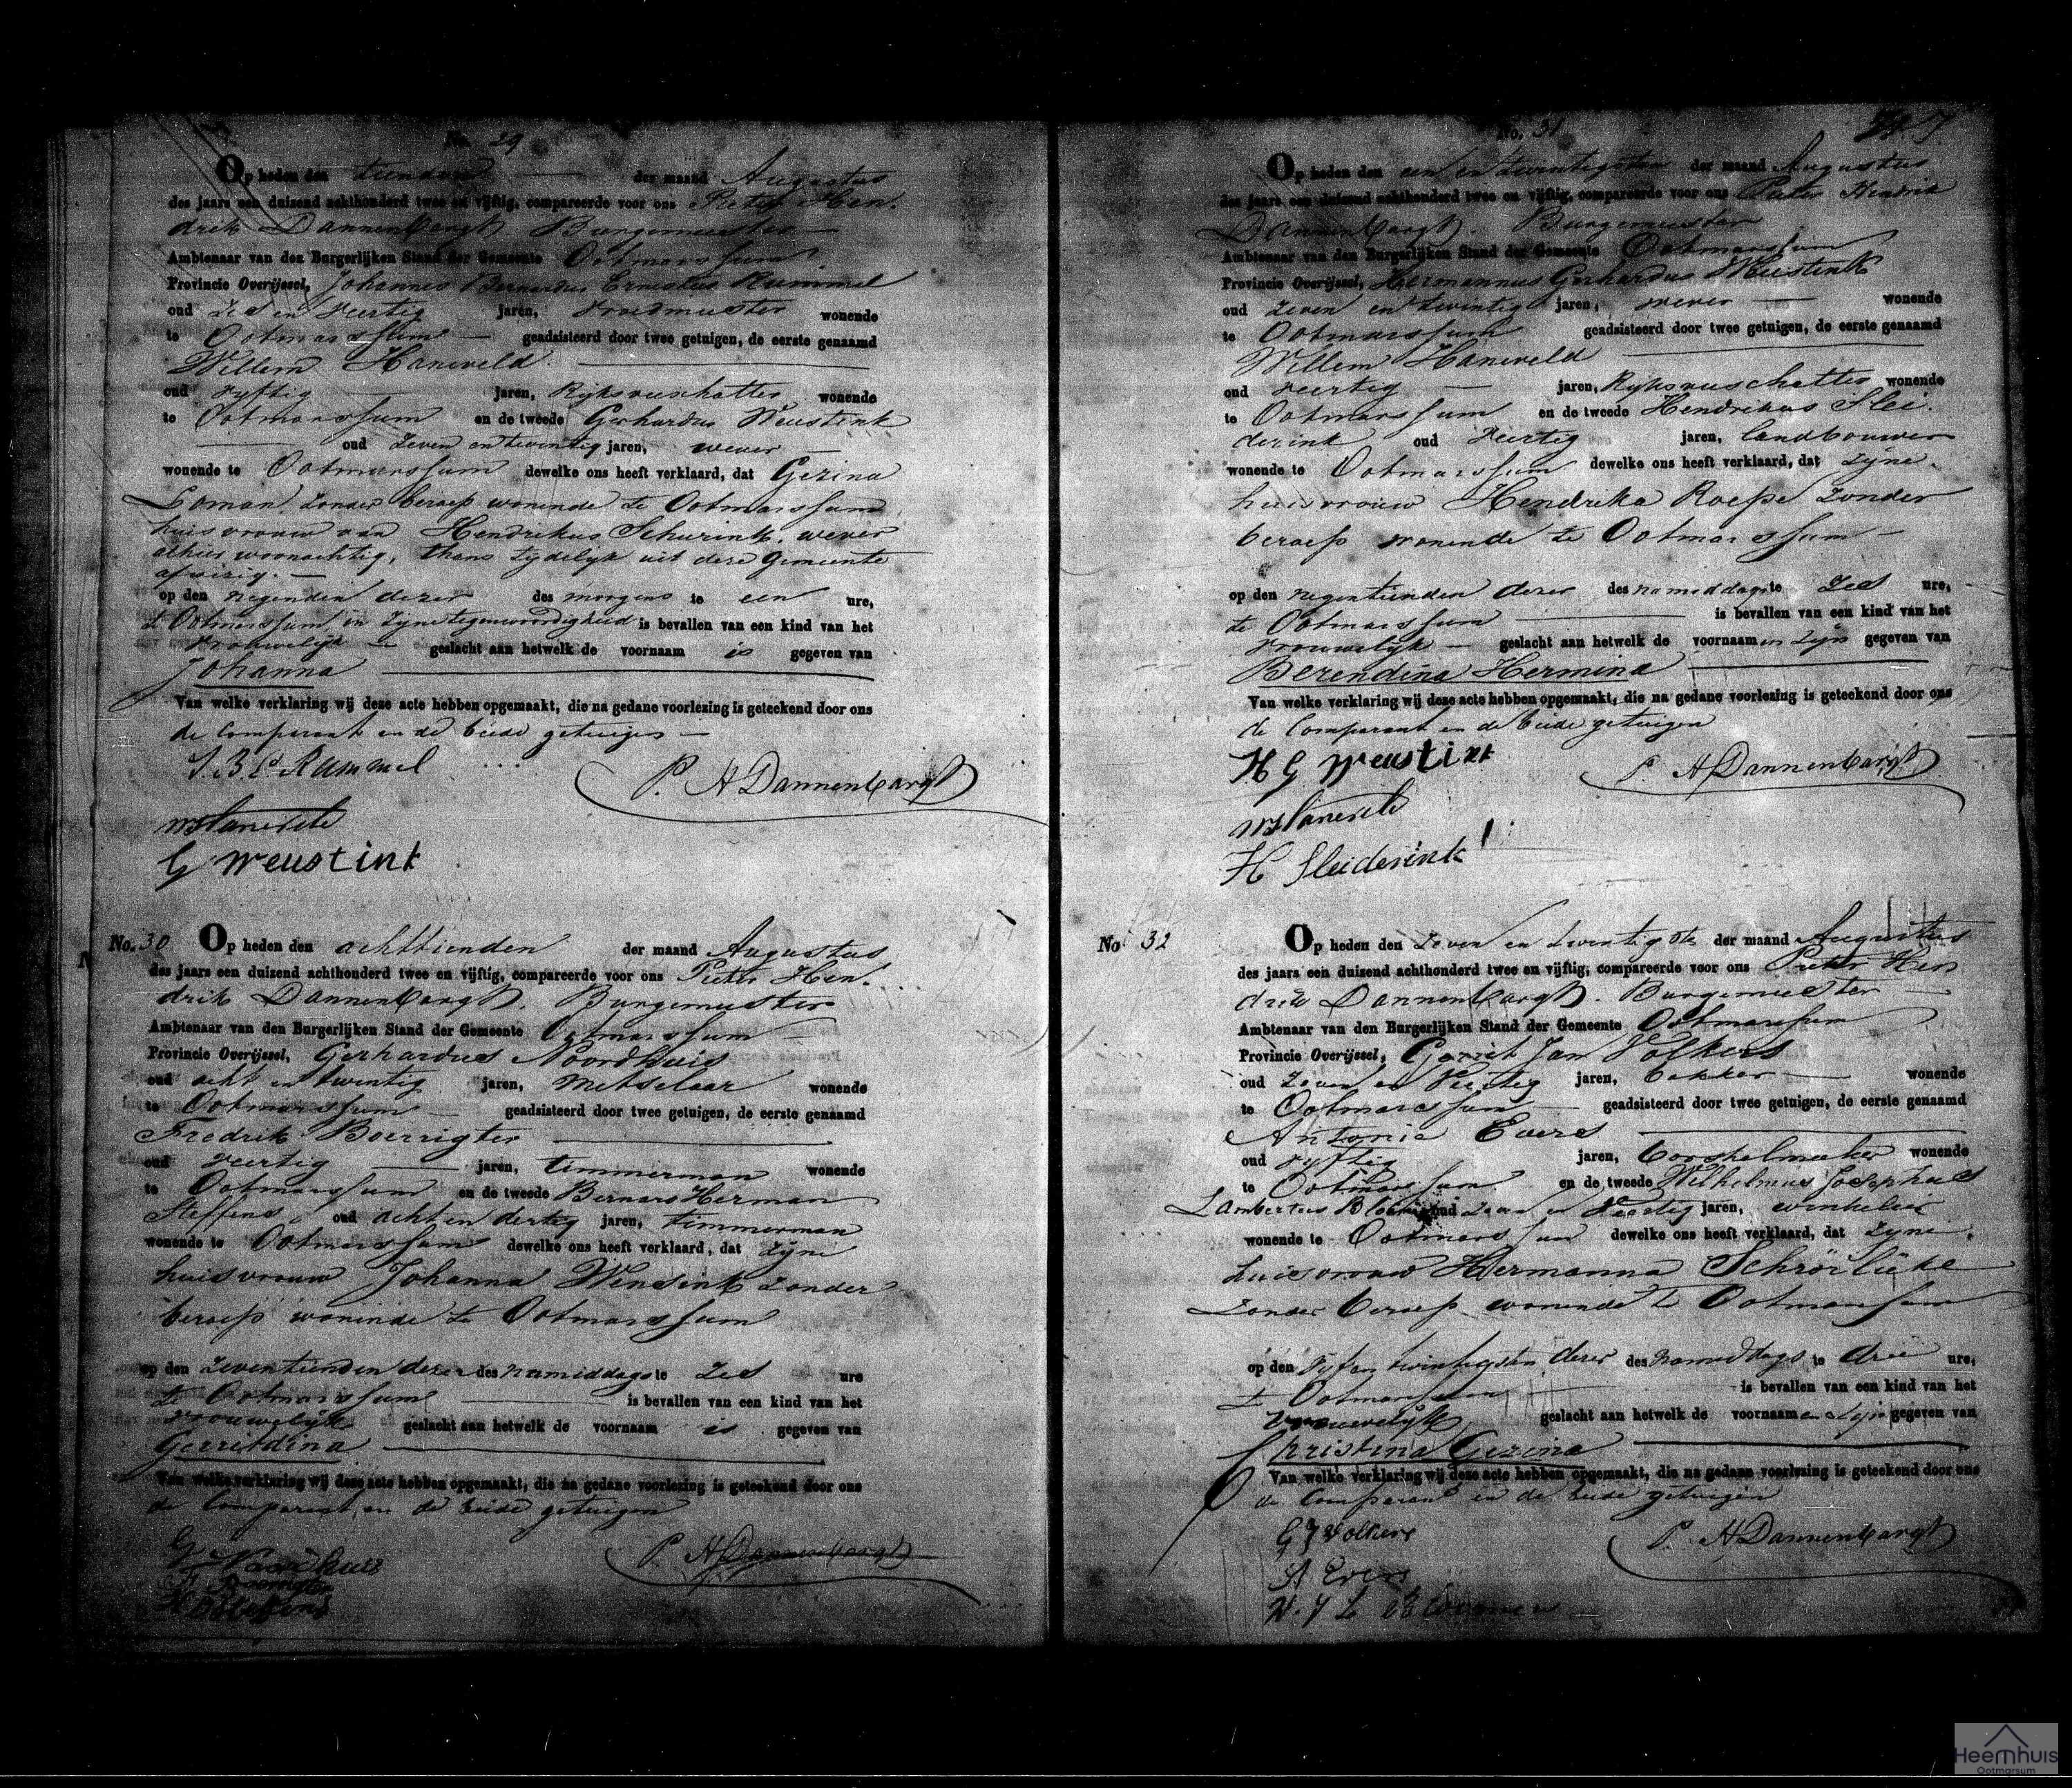 No. 29
Op heden den tienden der maand Augustus
des jaars een duizend achthonderd twee en vijftig, compareerde voor ons Pieter Hen-
drik Dannenbargh Burgemeester
Ambtenaar van den Burgerlijken Stand der Gemeente Ootmarssum
Provincie Overijssel, Johannes Bernardus Ernestus Rummel
oud zes en veertig jaren, vroedmeester wonende
te Ootmarssum geadsisteerd door twee getuigen, de eerste genaamd
Willem Haneveld
oud vyftig jaren, Ryksveeschatter wonende
te Ootmarssum en de tweede Gerhardus Weustink
oud zeven en twintig jaren, wever
wonende te Ootmarssum dewelke ons heeft verklaard, dat Gezina
Loman, zonder beroep wonende te Ootmarssum
huisvrouw van Hendrikus Schurink, wever
alhier woonachtig, thans tydelyk uit deze Gemeente
afwezig.
op den negenden dezer des morgens te een ure,
te Ootmarssum in zyne tegenwoordigheid is bevallen van een kind van het
vrouwelyk geslacht aan hetwelk de voornaam is gegeven van
Johanna
Van welke verklaring wij deze acte hebben opgemaakt, die na gedane voorlezing is geteekend door ons
de Comparant en de beide getuigen
J. B. E. Rummel
P. H Dannenbargh
W Haneveld
G Weustink
No. 30 Op heden den achttienden der maand Augustus
des jaars een duizend achthonderd twee en vijftig, compareerde voor ons Pieter Hen-
drik Dannenbargh. Burgemeester
Ambtenaar van den Burgerlijken Stand der Gemeente Ootmarssum
Provincie Overijssel, Gerhardus Noordhuis
oud acht en twintig jaren, metselaar wonende
te Ootmarssum geadsisteerd door twee getuigen, de eerste genaamd
Fredrik Boerrigter
oud veertig jaren, timmerman wonende
te Ootmarssum en de tweede Bernars Herman
Steffens oud acht en dertig jaren, timmerman
wonende te Ootmarssum dewelke ons heeft verklaard, dat zyne
huisvrouw Johanna Wensink zonder
beroep wonende te Ootmarssum
op den zeventienden dezer des namiddags te zes ure
te Ootmarssum is bevallen van een kind van het
vrouwelyk geslacht aan hetwelk de voornaam is gegeven van
Gerritdina
Van welke verklaring wij deze acte hebben opgemaakt, die na gedane voorlezing is geteekend door ons
de Comparant en de beide getuigen
G Noordhuis
P. H Dannenbargh
F Boerrigter
No. 31
Op heden den een en twintigsten der maand Augustus
des jaars een duizend achthonderd twee en vijftig, compareerde voor ons Pieter Hendrik
Dannenbargh. Burgemeester
Ambtenaar van den Burgerlijken Stand der Gemeente Ootmarssum
Provincie Overijssel, Hermannus Gerhardus Weustink
oud zeven en twintig jaren, wever wonende
te Ootmarssum geadsisteerd door twee getuigen, de eerste genaamd
Willem Haneveld
oud veertig jaren, Ryksveeschatter wonende
te Ootmarssum en de tweede Hendrikus Slei-
derink oud veertig jaren, landbouwer
wonende te Ootmarssum dewelke ons heeft verklaard, dat zyne
huisvrouw Hendrika Roepe zonder
beroep wonende te Ootmarssum
op den negentienden dezer des namiddags te zes ure,
te Ootmarssum is bevallen van een kind van het
vrouwelyk geslacht aan hetwelk de voornaamen zyn gegeven van
Berendina Hermina
Van welke verklaring wij deze acte hebben opgemaakt, die na gedane voorlezing is geteekend door ons
de Comparant en de beide getuigen
H G Weustink
P. H Dannenbargh
W Haneveld
H Sleiderink
No. 32 Op heden den zeven en twintigste der maand Augustus
des jaars een duizend achthonderd twee en vijftig, compareerde voor ons Pieter Hen
drik Dannenbargh. Burgemeester
Ambtenaar van den Burgerlijken Stand der Gemeente Ootmarssum
Provincie Overijssel, Gerrit Jan Volkers
oud zeven en veertig jaren, bakker wonende
te Ootmarssum geadsisteerd door twee getuigen, de eerste genaamd
Antonie Evers
oud vyftig jaren, borstelmaker wonende
te Ootmarssum en de tweede Wilhelmus Josephus
Lambertus oud zeven en veertig jaren, winkelier
wonende te Ootmarssum dewelke ons heeft verklaard, dat zyne
huisvrouw Hermanna Schrörlüke
zonder beroep wonende te Ootmarssum
op den vyf en twintigsten dezer des namiddags te drie ure,
te Ootmarssum is bevallen van een kind van het
vrouwelyk geslacht aan hetwelk de voornaamen zyn gegeven van
Christina Gezina
Van welke verklaring wij deze acte hebben opgemaakt, die na gedane voorlezing is geteekend door ons
de Comparant en de beide getuigen
G J Volkers
P. H Dannenbargh
A Evers
W. J L
Heemhuis
Ootmarsum